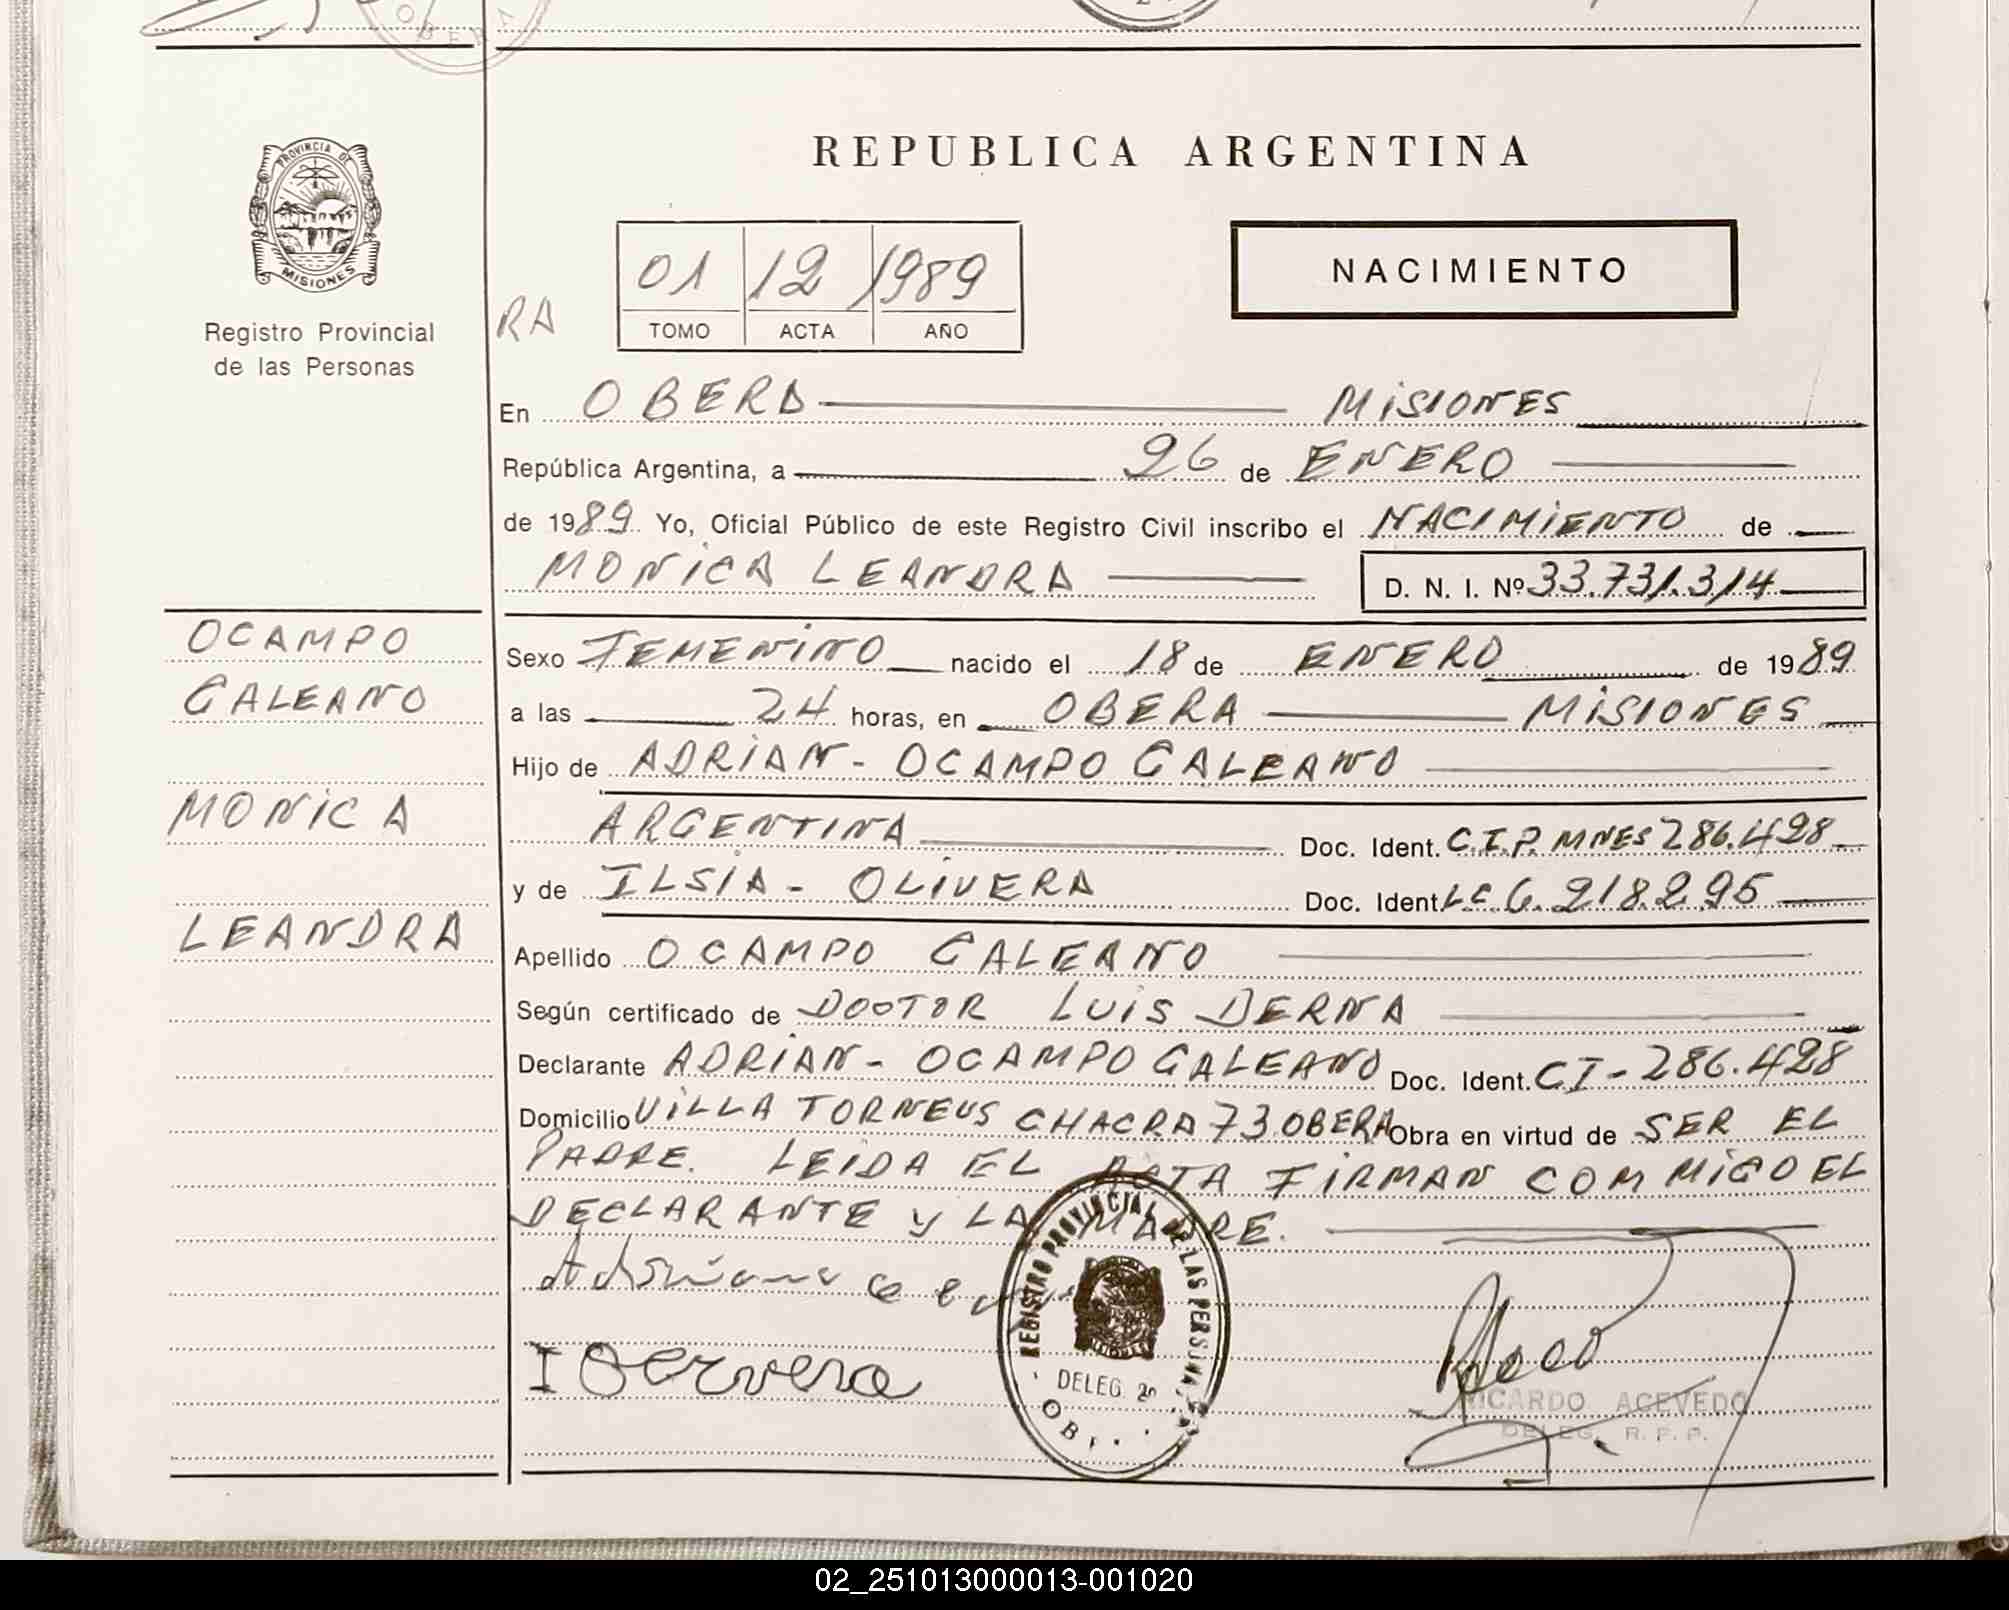 REPUBLICA ARGENTINA
PROVINCIA DE
MISIONES
Registro Provincial
de las Personas
NACIMIENTO
RA
01 12 1989
TOMO ACTA AÑO
En OBERA MISIONES
República Argentina, a 26 de ENERO
de 1989 Yo, Oficial Público de este Registro Civil inscribo el NACIMIENTO de
MONICA LEANDRA D. N. I. Nº 33.731.314
OCAMPO
GALEANO
MONICA
LEANDRA
Sexo FEMENINO nacido el 18 de ENERO de 1989
a las 24 horas, en OBERA MISIONES
Hijo de ADRIAN - OCAMPO GALEANO
ARGENTINA Doc. Ident. C.I.P. MNES 286.428
y de ILSIA - OLIVERA Doc. Ident. LC 6.218.295
Apellido OCAMPO GALEANO
Según certificado de DOOTOR LUIS DERNA
Declarante ADRIAN - OCAMPO GALEANO Doc. Ident. CI - 286.428
Domicilio VILLA TORNEUS CHACRA 73 OBERA Obra en virtud de SER EL
PADRE. LEIDA EL ACTA FIRMAN COMMIGO EL
DECLARANTE y LA MADRE.
REGISTRO PROVINCIAL DE LAS PERSONAS
DELEG.
RICARDO ACEVEDO
DELEG. R. P. P.
02_251013000013-001020